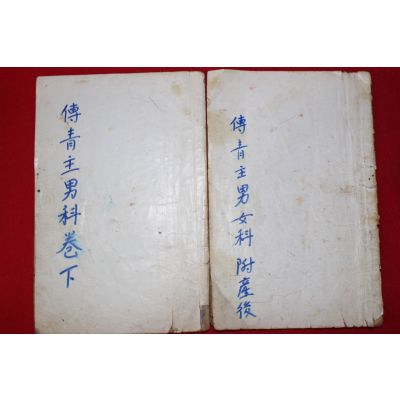 傅青主男科卷下
傅青主男女科 附產後